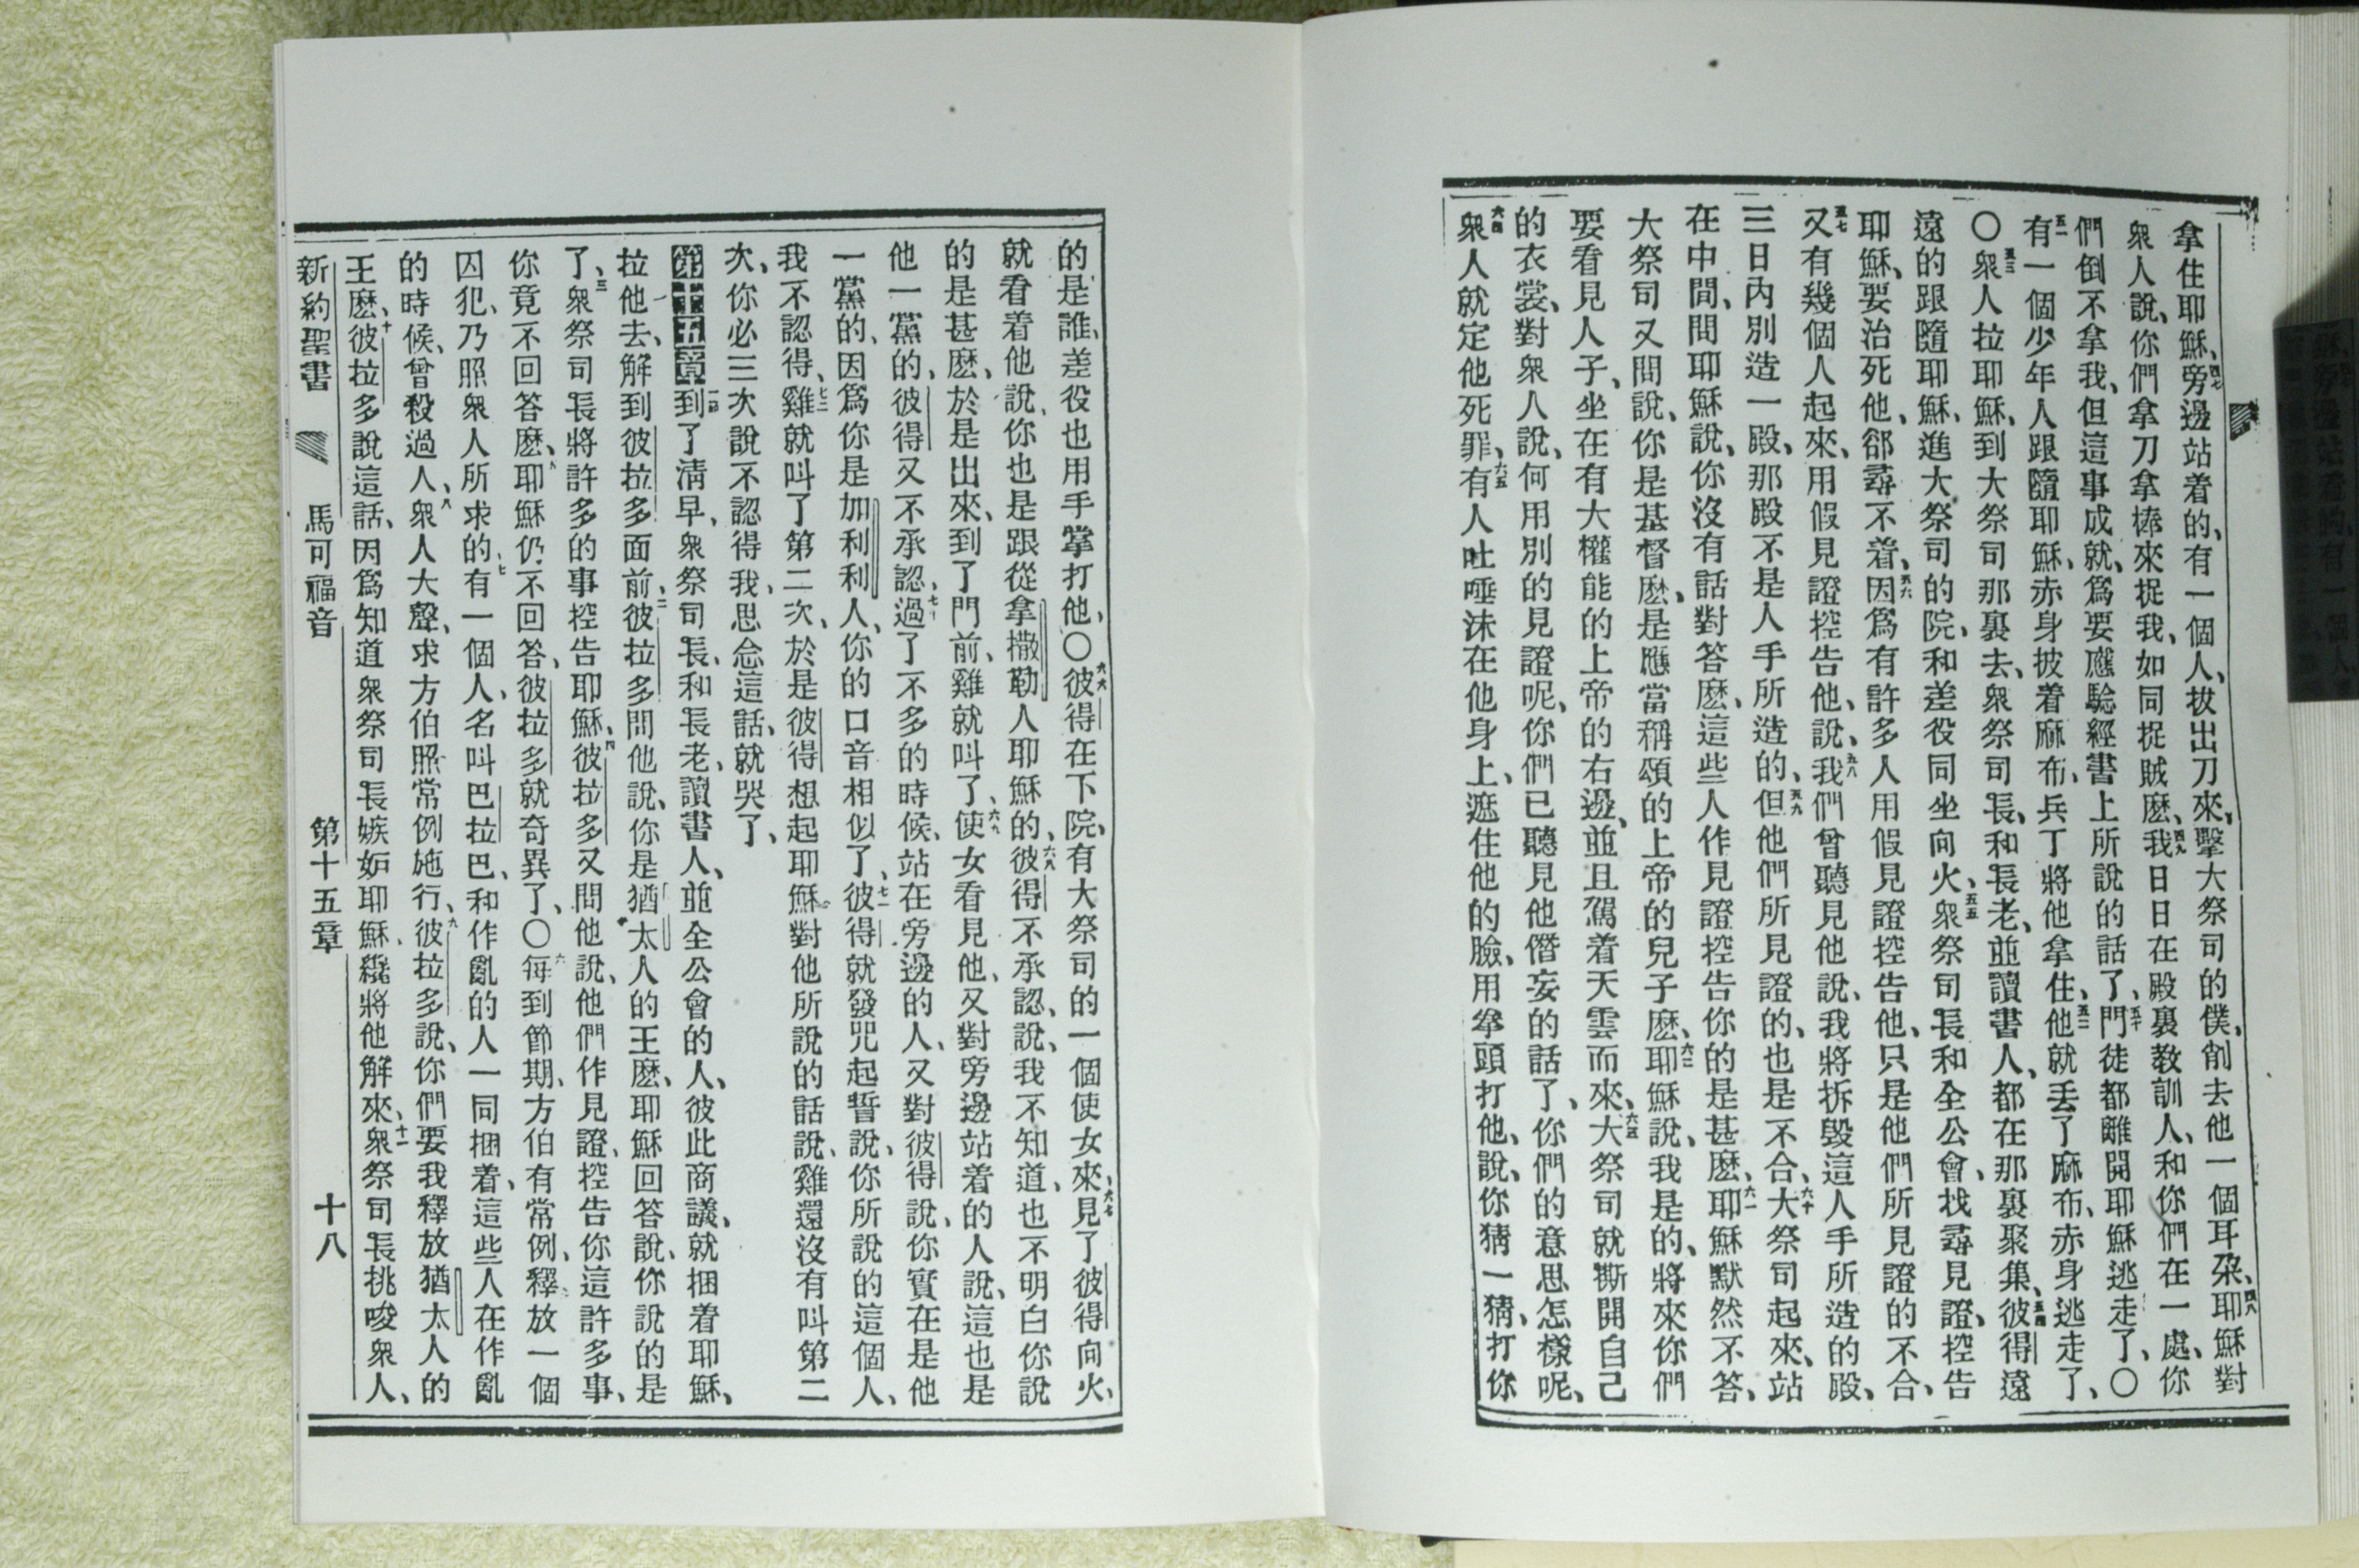 拿住耶穌、四七旁邊站着的、有一個人、拔出刀來、擊大祭司的僕、削去他一個耳朶、四八耶穌對
衆人說、你們拿刀拿棒來捉我、如同捉賊麽、四九我日日在殿裏敎訓人、和你們在一處、你
們倒不拿我、但這事成就、爲要應驗經書上所說的話了、五十門徒都離開耶穌逃走了、〇
五一有一個少年人跟隨耶穌、赤身披着麻布、兵丁將他拿住、五二他就丟了麻布、赤身逃走了、
〇五三衆人拉耶穌、到大祭司那裏去、衆祭司長、和長老、並讀書人、都在那裏聚集、五四彼得遠
遠的跟隨耶穌、進大祭司的院、和差役同坐向火、五五衆祭司長和全公會、找尋見證、控告
耶穌、要治死他、郤尋不着、五六因爲有許多人用假見證控告他、只是他們所見證的不合、
五七又有幾個人起來、用假見證控告他、說、五八我們曾聽見他說、我將拆毀這人手所造的殿、
三日內別造一殿、那殿不是人手所造的、五九但他們所見證的、也是不合、六十大祭司起來、站
在中間、問耶穌說、你沒有話對答麽、這些人作見證控告你的是甚麽、六一耶穌默然不答、
大祭司又問說、你是基督麽、是應當稱頌的上帝的兒子麽、六二耶穌說、我是的、將來你們
要看見人子、坐在有大權能的上帝的右邊、並且駕着天雲而來、六三大祭司就撕開自己
的衣裳、對衆人說、何用別的見證呢、你們已聽見他僭妄的話了、你們的意思怎樣呢、
六四衆人就定他死罪、六五有人吐唾沫在他身上、遮住他的臉、用拳頭打他、說、你猜一猜、打你
的是誰、差役也用手掌打他、〇六六彼得在下院、有大祭司的一個使女來、六七見了彼得向火、
就看着他說、你也是跟從拿撒勒人耶穌的、六八彼得不承認、說、我不知道、也不明白你說
的是甚麽、於是出來、到了門前、雞就叫了、六九使女看見他、又對旁邊站着的人說、這也是
他一黨的、彼得又不承認、七十過了不多的時候、站在旁邊的人、又對彼得說、你實在是他
一黨的、因爲你是加利利人、你的口音相似了、七一彼得就發咒起誓說、你所說的這個人、
我不認得、七二雞就叫了第二次、於是彼得想起耶穌對他所說的話說、雞還沒有叫第二
次、你必三次說不認得我、思念這話、就哭了、
第十五章 一節到了淸早、衆祭司長、和長老、讀書人、並全公會的人、彼此商議、就捆着耶穌、
拉他去、解到彼拉多面前、二彼拉多問他說、你是猶太人的王麽、耶穌回答說、你說的是
了、三衆祭司長將許多的事控告耶穌、四彼拉多又問他說、他們作見證、控告你這許多事、
你竟不回答麽、五耶穌仍不回答、彼拉多就奇異了、〇六每到節期、方伯有常例、釋放一個
囚犯、乃照衆人所求的、七有一個人、名叫巴拉巴、和作亂的人一同捆着、這些人在作亂
的時候、曾殺過人、八衆人大聲、求方伯照常例施行、九彼拉多說、你們要我釋放猶太人的
王麽、十彼拉多說這話、因爲知道衆祭司長嫉妒耶穌、纔將他解來、十一衆祭司長挑唆衆人、
新約聖書 馬可福音 第十五章 十八